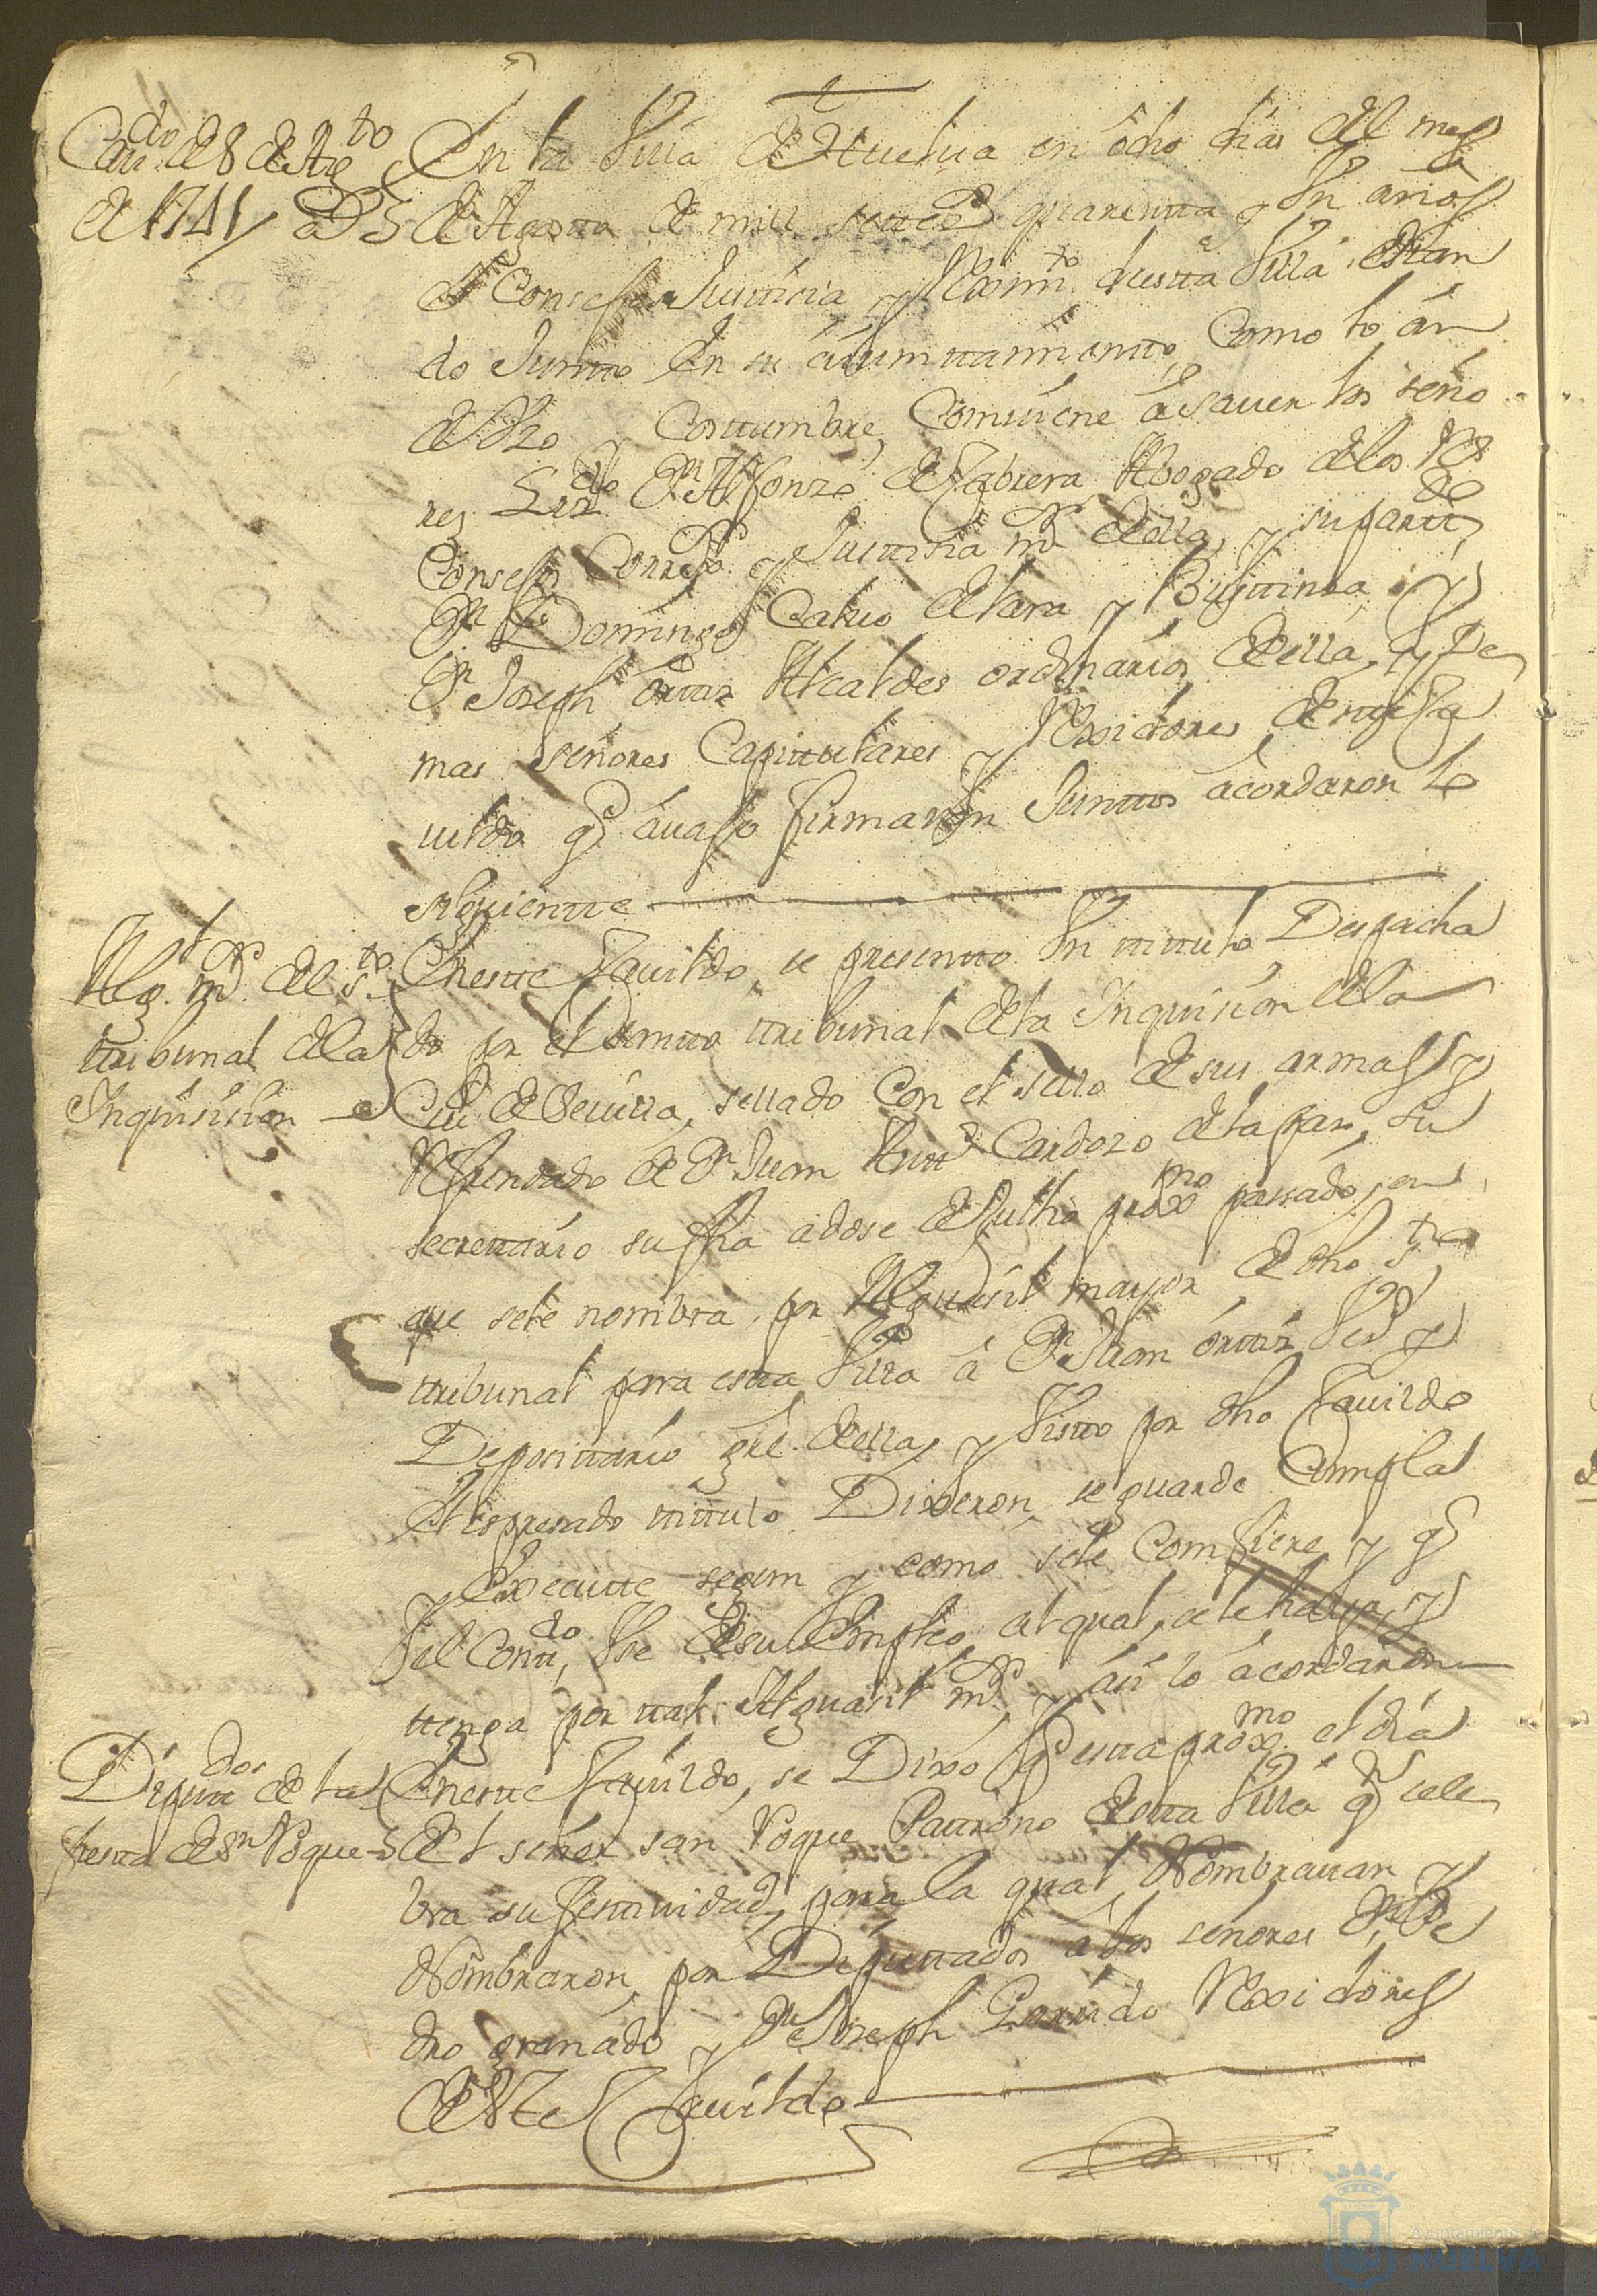 Cav.do de 8 de Ag.to
de 1741
En la Villa de Huelva en ocho dias del mes
de Agosto de mill settec.s quarentta y Un años
el Consejo Justticia y Reximi.to desta Villa estan
do Juntto en su aiunttamientto, Como lo an
de Uzo y Costtumbre, Comviene asaver los seño
res Liz.do D.n Alfonzo de Cabrera Abogado de los R.s
Consejos Correx.r y Justticia m.r de ella, y su partt.do
D.n Domingo Calvo de lara y Busttinza y
D.n Joseph Orttiz Alcaldes ordinarios de ella, y De
mas señores Capittulares y Rexidores de este Ca
vildo q.e avajo firmaron Junttos acordaron lo
siguientte
Alg.l m.r del s.to
ttribunal de la
Inquisision
En estte Cavildo, se presentto Un tittulo Despacha
do por el Santto ttribunal de la Inquisi.on de la
Ciu.d de Sevilla, sellado Con el sello de sus armas y
Refrendado de D.n Juan Cardozo de la paz, su
secrettario su fha a dose de Julio prox.mo passado, en
que se le nombra, por Alguasil mayor de dho s.to
ttribunal para estta Villa a D.n Juan Orttiz Vez.o y
Deposittario grl. de ella, y Vistto por dho Cavildo
el espresado tittulo Dixeron, se guarde Cumpla
y Execute segun y como se le Comfiere y q.e
el Contt.do Use de su Empleo, al qual, se le haya, y
ttenga por ttal Alguasil m.r, y asi lo acordaron
Diputt.dos de la
fiestta de S.n Roque
En estte Cavildo, se Dixo q.e estta prox.mo el dia
de el señor san Roque Pattrono de estta Villa q.e cele
bra su festtividad, para la qual Nombravan y
Nombraron, por Diputtados a los señores D.n Pe
dro granado y D.n Joseph Garrido Rexidores
de estte Cavildo
Ayuntamiento de
HUELVA